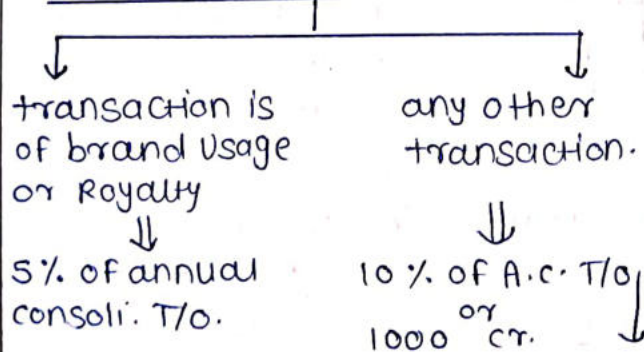 transaction is
of brand usage
or Royalty
⇓
5% of annual
consoli. T/O.
any other
transaction.
⇓
10 % of A.C. T/O
or
1000 cr.